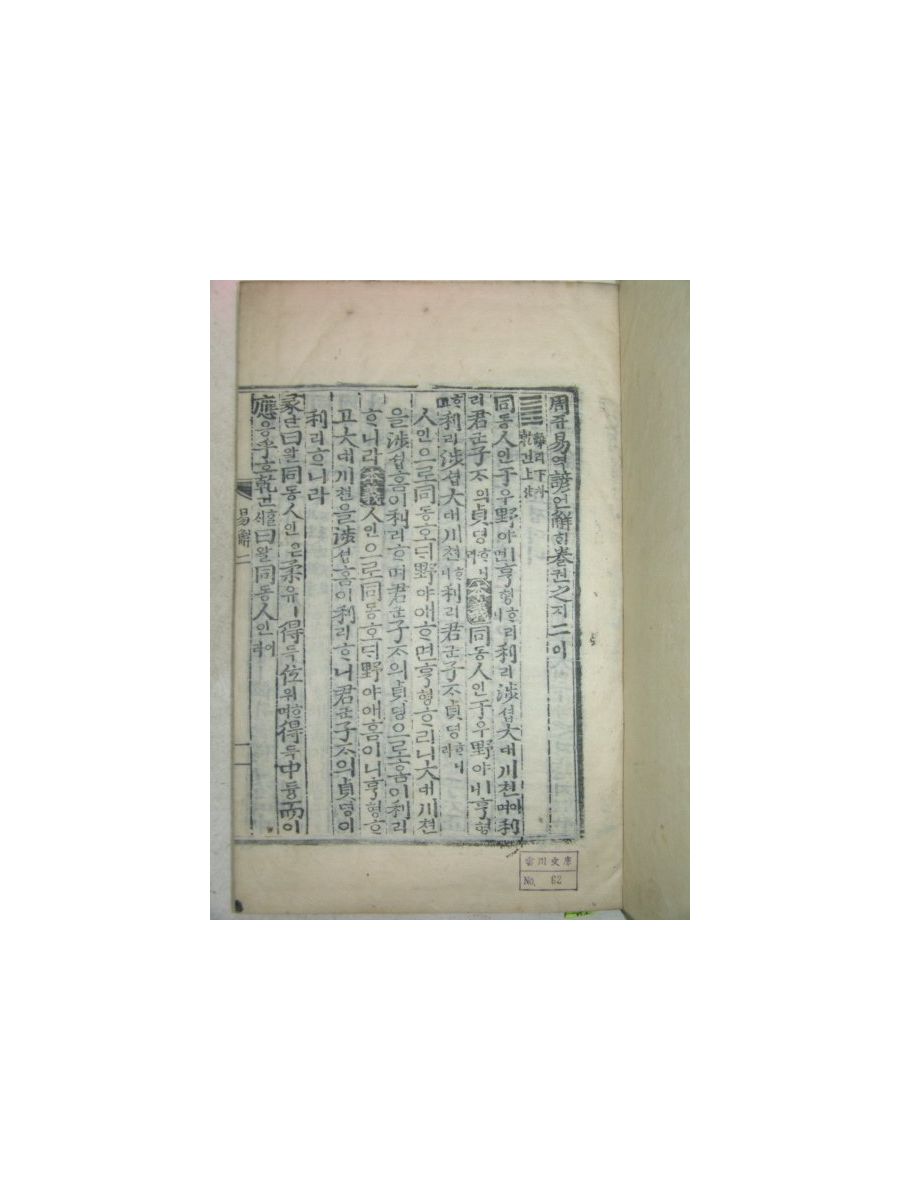 周쥬易역諺언解ᄒᆡ卷권之지二이
䷌ 離리下하乾건上샹
同동人인于우野야ㅣ면亨형ᄒᆞ리니利리涉셥大대川쳔이며利
리君군子ᄌᆞ의貞뎡ᄒᆞ니라本義同동人인于우野야ㅣ니亨형
ᄒᆞ고利리涉셥大대川쳔ᄒᆞ니利리君군子ᄌᆞ貞뎡ᄒᆞ니라
人인으로同동호ᄃᆡ野야애ᄒᆞ면亨형ᄒᆞ리니大대川쳔
을涉셥홈이利리ᄒᆞ며君군子ᄌᆞ의貞뎡으로홈이利리
ᄒᆞ니라本義人인으로同동호ᄃᆡ野야애홈이니亨형ᄒᆞ
고大대川쳔을涉셥홈이利리ᄒᆞ니君군子ᄌᆞ의貞뎡이
利리ᄒᆞ니라
彖단曰왈同동人인은柔유ㅣ得득位위ᄒᆞ며得득中듕而이
應응乎호乾건ᄒᆞᆯᄉᆡ曰왈同동人인이라
易解二
雲川文庫
No.